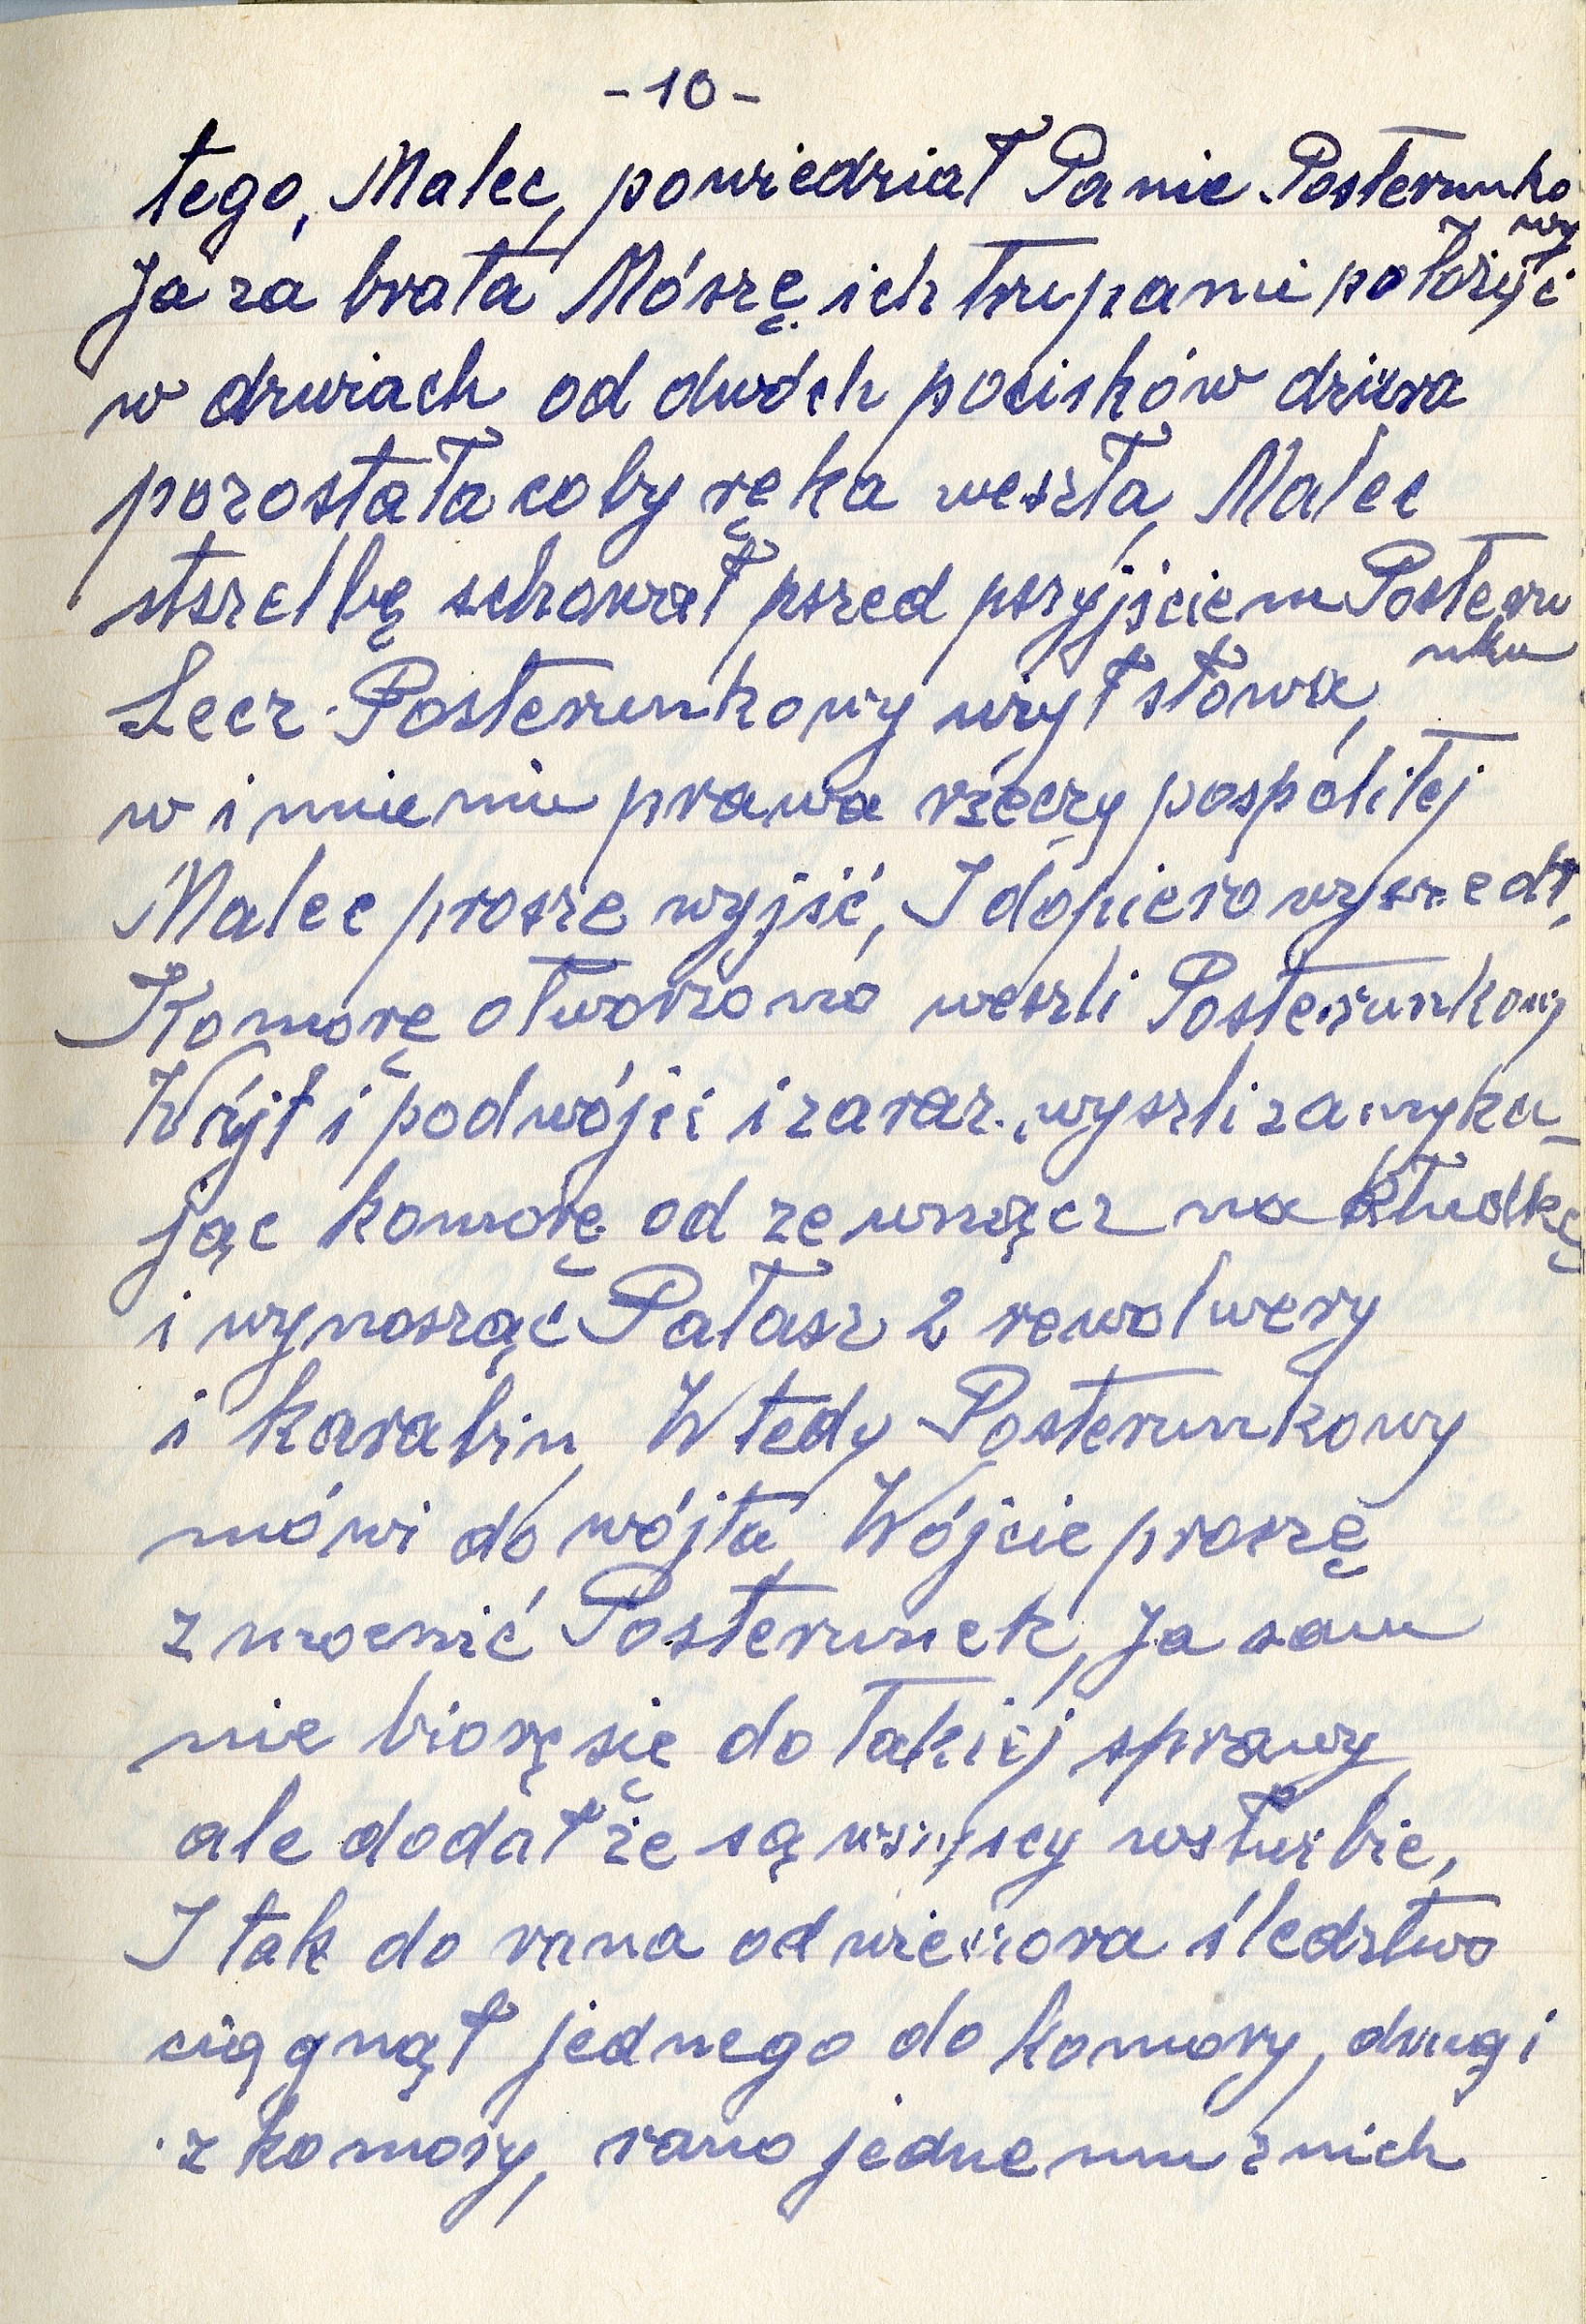 -10-
tego, Malec, powiedział Panie Posterunko
wy
Ja za brata Mószę ich trupami położyć
w drwiach od dwóch pocisków dziura
pozostała coby ręka weszła, Malec
stszelbę schował pszed pszyjściem Posteru
nku
Lecz Posterunkowy użył słowa,
w imieniu prawa rzeczy pospolitej
Malec prosze wyjść, I dopiero wyszedł,
Komorę otworzono weszli Posterunkowy
Wójt i podwójci i zaraz wyszli zamyka-
jąc komorę od zewnącz na kłudkę
i wynosząć Pałasz 2 rewolwery
i karabin, Wtedy Posterunkowy
mówi do wójta, Wójcie proszę
zmocnić Posterunek, Ja sam
nie biorę się do takiej sprawy,
ale dodał że są wszyscy wsłużbie,
I tak do rana od wieczora śledztwo
ciągnął jednego do komory, drugi
z komory, rano jednemu z nich